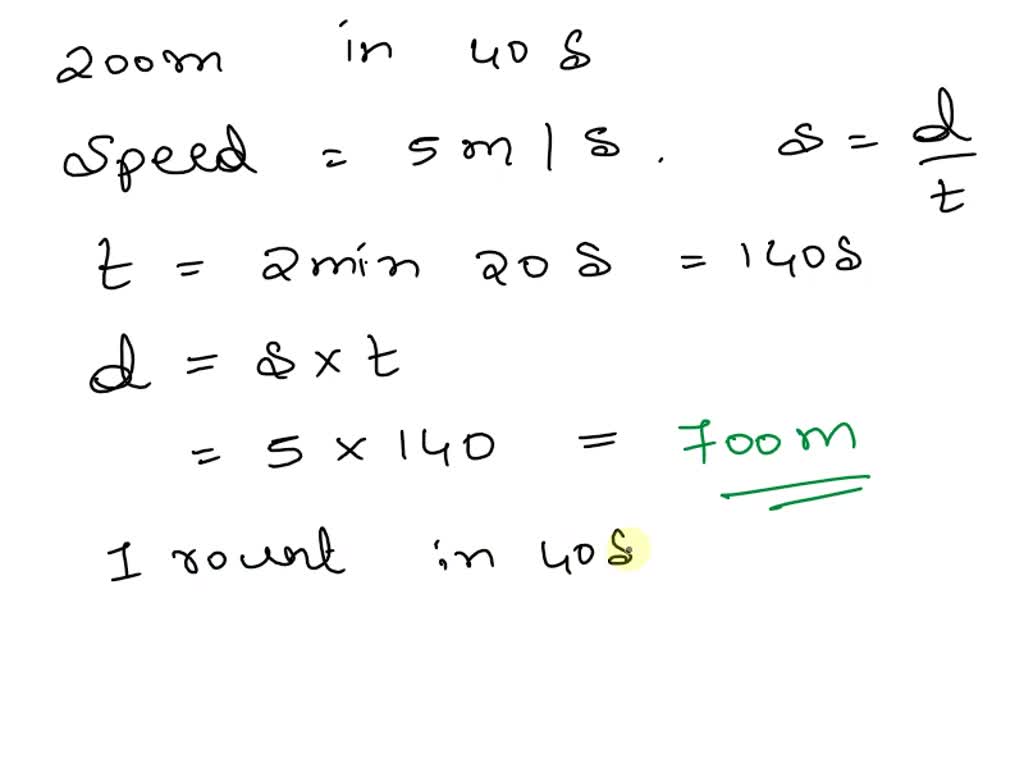 200m in 40 s
Speed = 5 m / s . s = d/t
t = 2 min 20 s = 140s
d = s x t
= 5 x 140 = 700m
1 in 40s